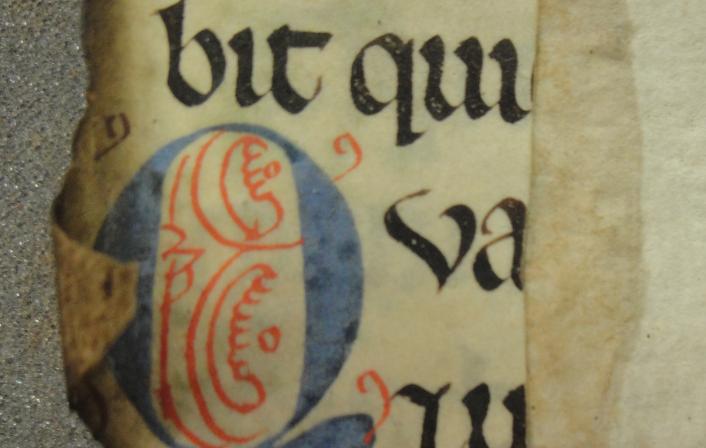 bit qui
Qva